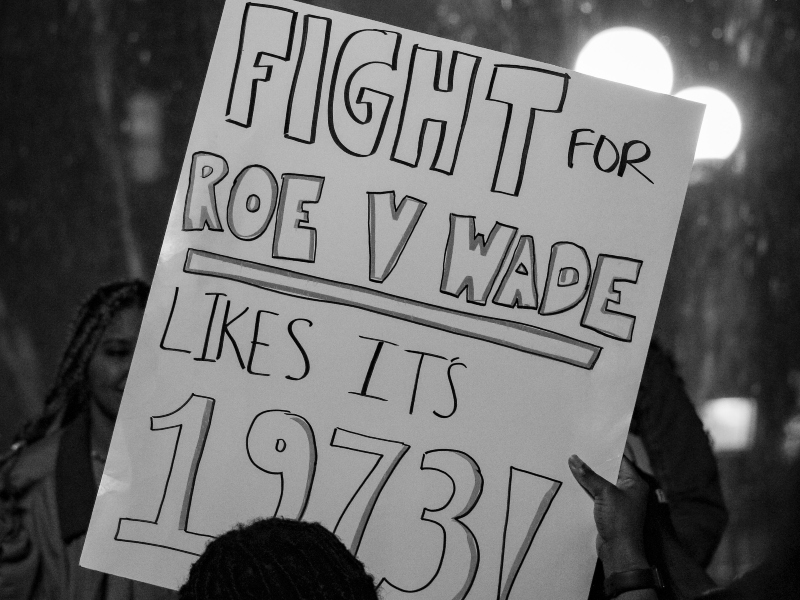 FIGHT FOR
ROE V WADE
LIKES IT'S
1973!